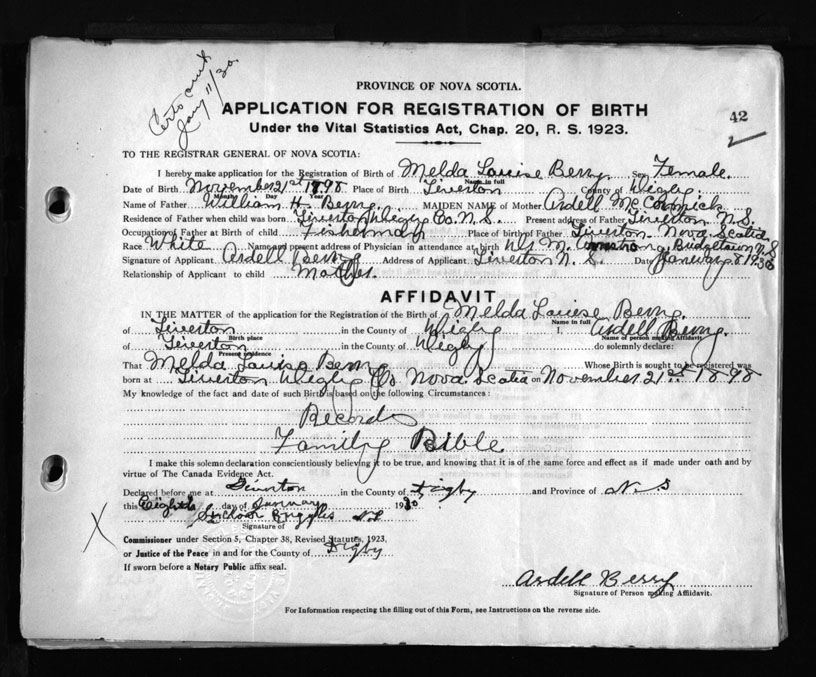 Certs
Jany 11/30.
PROVINCE OF NOVA SCOTIA.
APPLICATION FOR REGISTRATION OF BIRTH
42
Under the Vital Statistics Act, Chap. 20, R. S. 1923.
TO THE REGISTRAR GENERAL OF NOVA SCOTIA:
I hereby make application for the Registration of Birth of Melda Louise Berry. Sex Female.
Name in full
Date of Birth November 21st 1898 Place of Birth Tiverton County of Digby.
Month Day Year
Name of Father William H. Berry. MAIDEN NAME of Mother Ardell McCormick
Residence of Father when child was born Tiverton Digby Co. N.S. Present address of Father Tiverton N.S.
Occupation of Father at Birth of child Fisherman Place of birth of Father Tiverton Nova Scotia
Race White Name and present address of Physician in attendance at birth N.S.
Signature of Applicant Ardell Berry Address of Applicant Tiverton N. S. Date January 8 1930
Relationship of Applicant to child Mother.
AFFIDAVIT
IN THE MATTER of the application for the Registration of the Birth of Melda Louise Berry.
Name in full
of Tiverton in the County of Digby I, Ardell Berry.
Birth place Name of person making Affidavit.
of Tiverton in the County of Digby do solemnly declare:
Present residence
That Melda Louise Berry Whose Birth is sought to be registered was
born at Tiverton Digby Co Nova Scotia on November 21st 1898
My knowledge of the fact and date of such Birth is based on the following Circumstances:
Records
Family Bible
I make this solemn declaration conscientiously believing it to be true, and knowing that it is of the same force and effect as if made under oath and by
virtue of The Canada Evidence Act.
Declared before me at Tiverton in the County of Digby and Province of N S
this Eighth day of January 1930
Signature of
X
Commissioner under Section 5, Chapter 38, Revised Statutes, 1923,
or Justice of the Peace in and for the County of Digby
If sworn before a Notary Public affix seal.
Ardell Berry
Signature of Person making Affidavit.
For Information respecting the filling out of this Form, see Instructions on the reverse side.